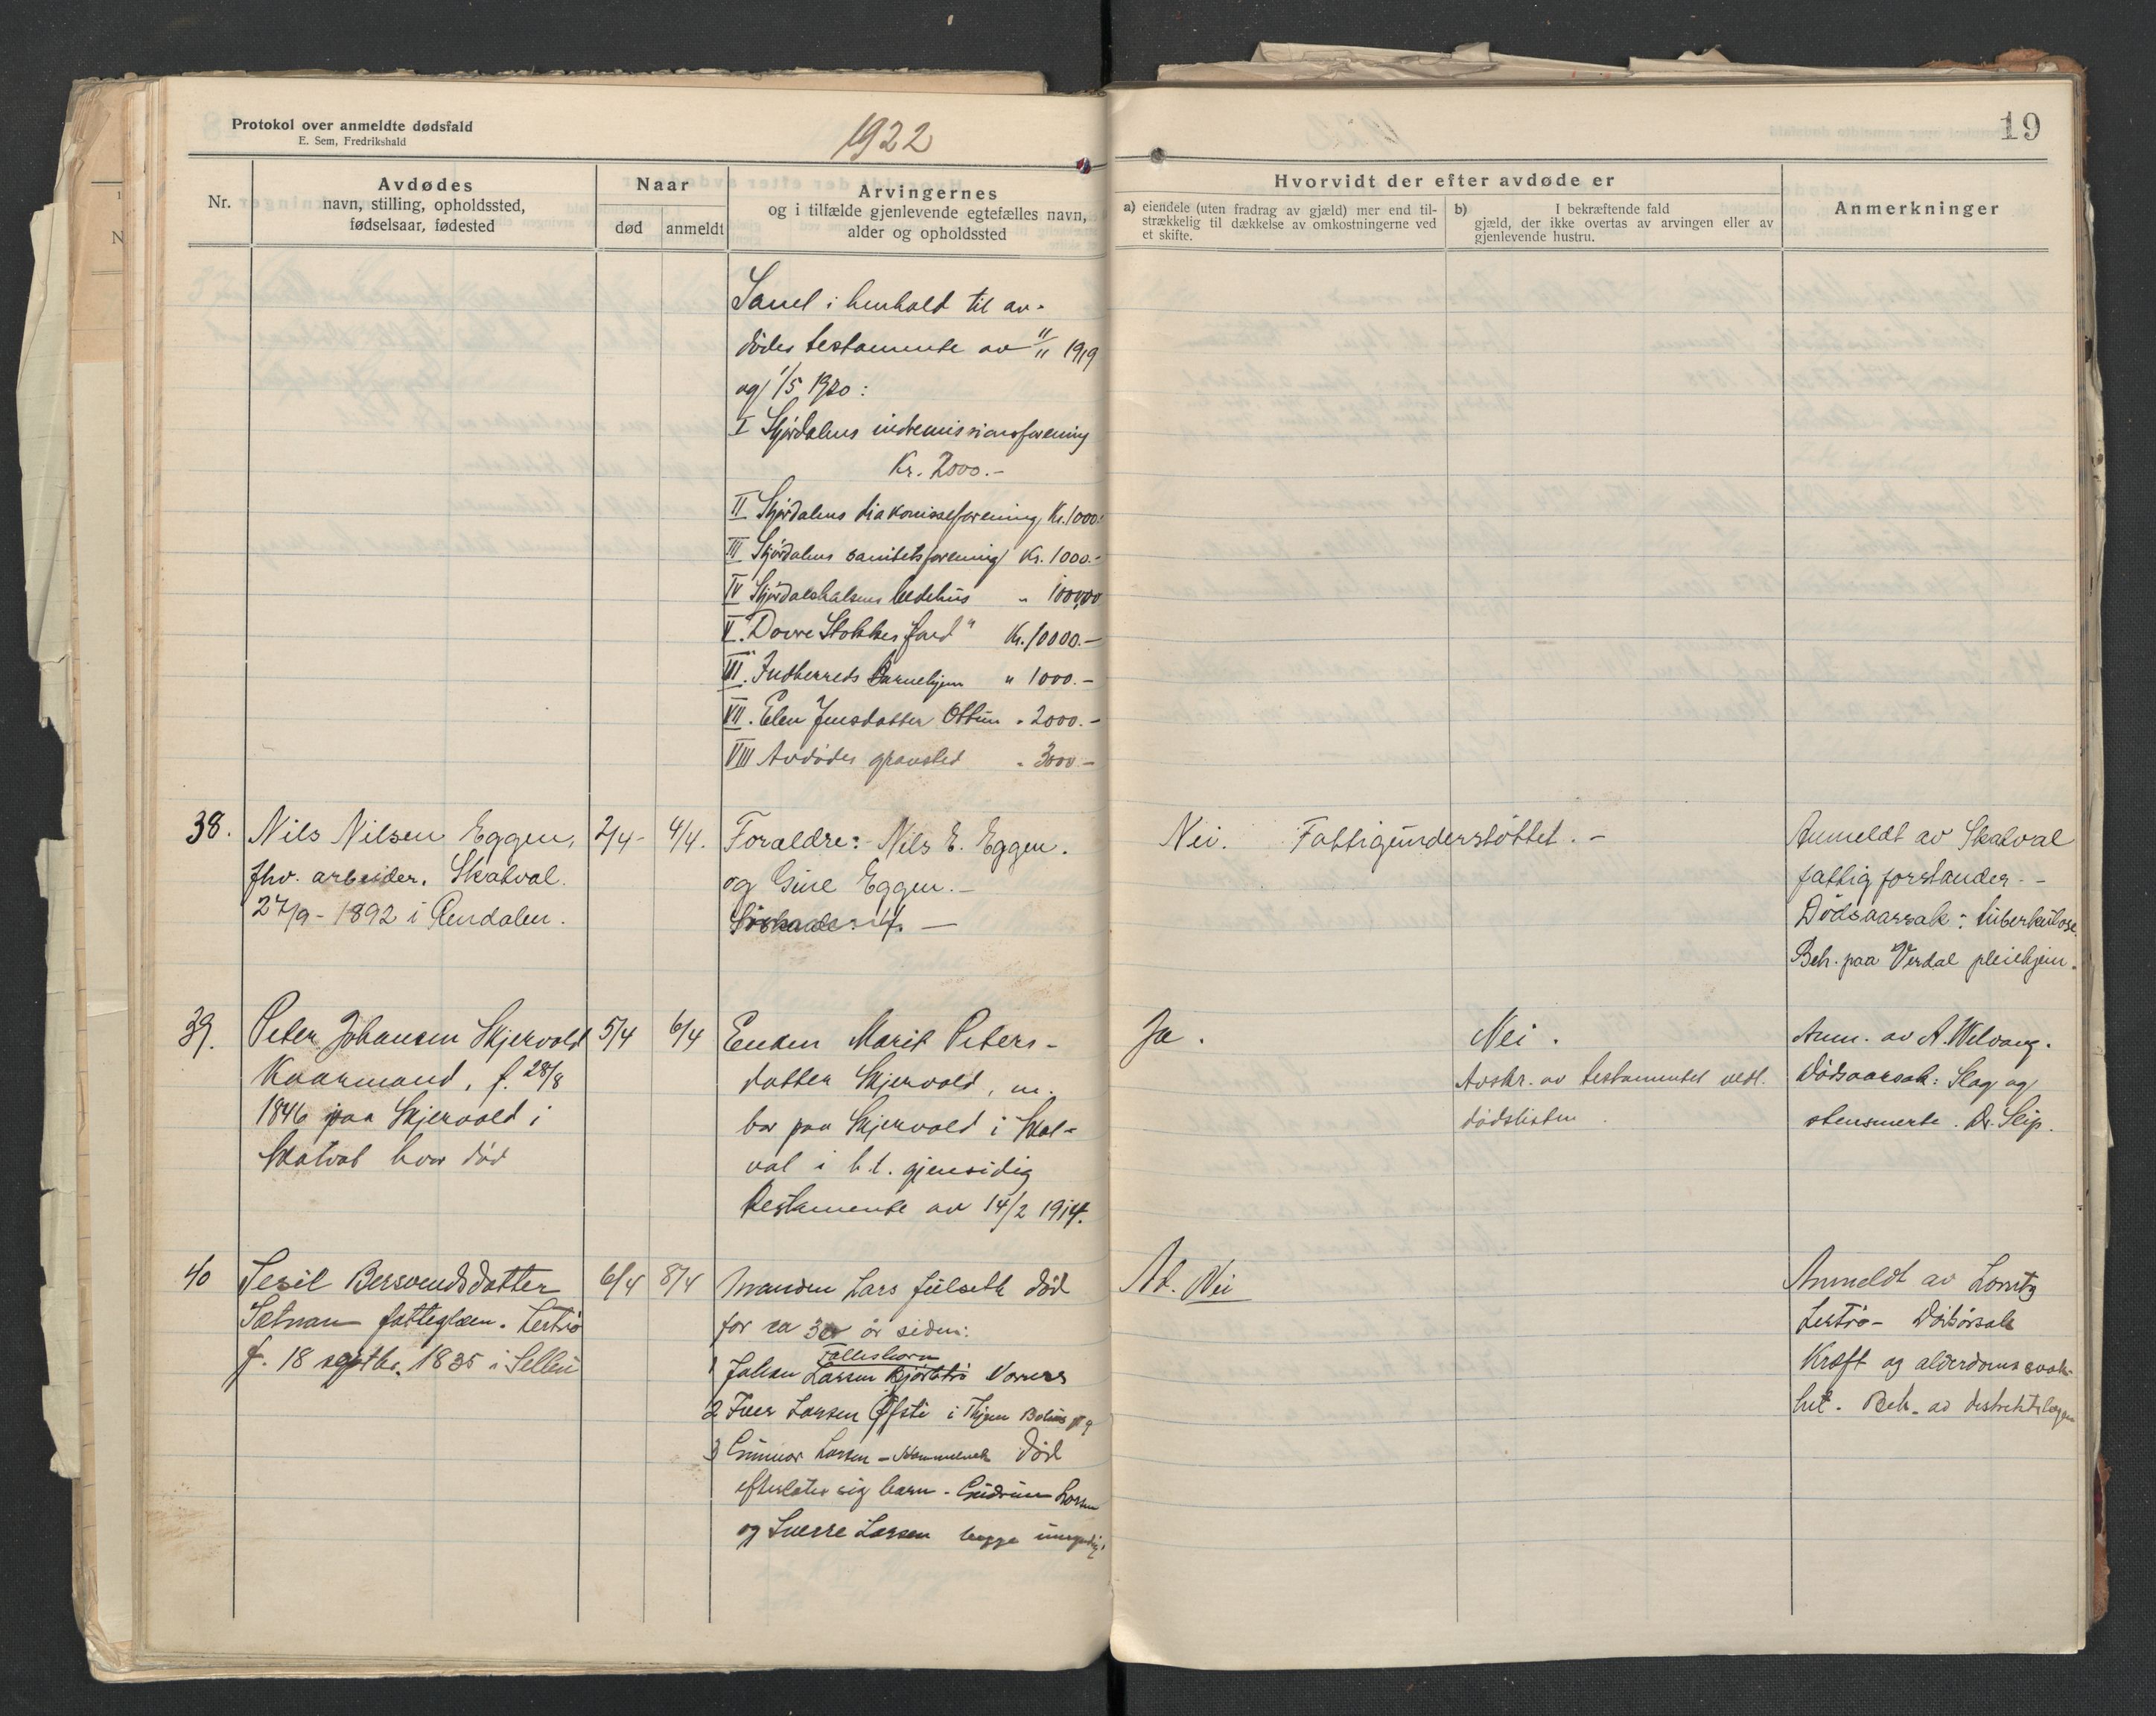 Protokol over anmeldte dødsfald
E. Sem, Fredrikshald
1922
Nr.
Avdødes
navn, stilling, opholdssted,
fødselsaar, fødested
Naar
død
anmeldt
Arvingernes
og i tilfælde gjenlevende egtefælles navn,
alder og opholdssted
Samt i henhold til av-
dødes testamente av 11/11 1919
og 1/5 1920:
I Stjørdalens indremissionsforening
Kr. 2000.-
II Stjørdalens diakonisseforening Kr. 1000.-
III Stjørdalens sanitetsforening Kr. 1000.-
IV Stjørdalshalsens bedehus " 1000,00
V. Dovre Stokkes fond" Kr. 10000.-
III. Indherreds Barnehjem " 1000.-
VII. Elen Jensdatter " 2000.-
VIII Avdødes gravsted " 3000.-
38.
Nils Nilsen Eggen,
fhv. arbeider. Skatval.
27/9 - 1892 i Rendalen.
2/4-
4/4.
Foræeldre: Nils E. Eggen.
og Gine Eggen.-
39.
Peter Johansen Skjervold
Kaarmand, f. 28/8
1846 paa Skjervold i
Skatval hvor død
5/4
6/4
Enken Marit Peters-
datter Skjervold, m.
bor paa Skjervold i Skat-
val i h.t. gjensidig
testamente av 14/2 1914.
40
Seril Bersvendsdatter
Sætnan fattiglem. Lertrø
f. 18 septbr. 1835 i Selbu
6/4
8/4
Manden Lars Julseth død
for ca 30 år siden:
1 Johan Larsen
2 Iver Larsen Øfsti i
3 Gunnar Larsen - Hommelvik død
efterlater sig barn - Gudrun Larsen
og Sverre Larsen begge umyndig.
19
Hvorvidt der efter avdøde er
a) eiendele (uten fradrag av gjæld) mer end til-
strækkelig til dækkelse av omkostningerne ved
et skifte.
b) I bekræftende fald
gjæld, der ikke overtas av arvingen eller av
gjenlevende hustru.
Anmerkninger
Nei. Fattigunderstöttet. -
Anmeldt av Skatval
fattigforstander. -
Dødsaarsak: tuberkulose.
Beh. paa Verdal pleiehjem.
Ja.
Nei.
Avskr. av testamentet vedl.
dødslisten
Anm. av A. Welvang.
Dødsaarsak: Slag og
stensmerte. Dr. Slip.
Ad. Nei
Anmeldt av Lorntz
Lertrø - Dødsårsak
Kræft og alderdomssvak-
het. Beh. av distriktslægen